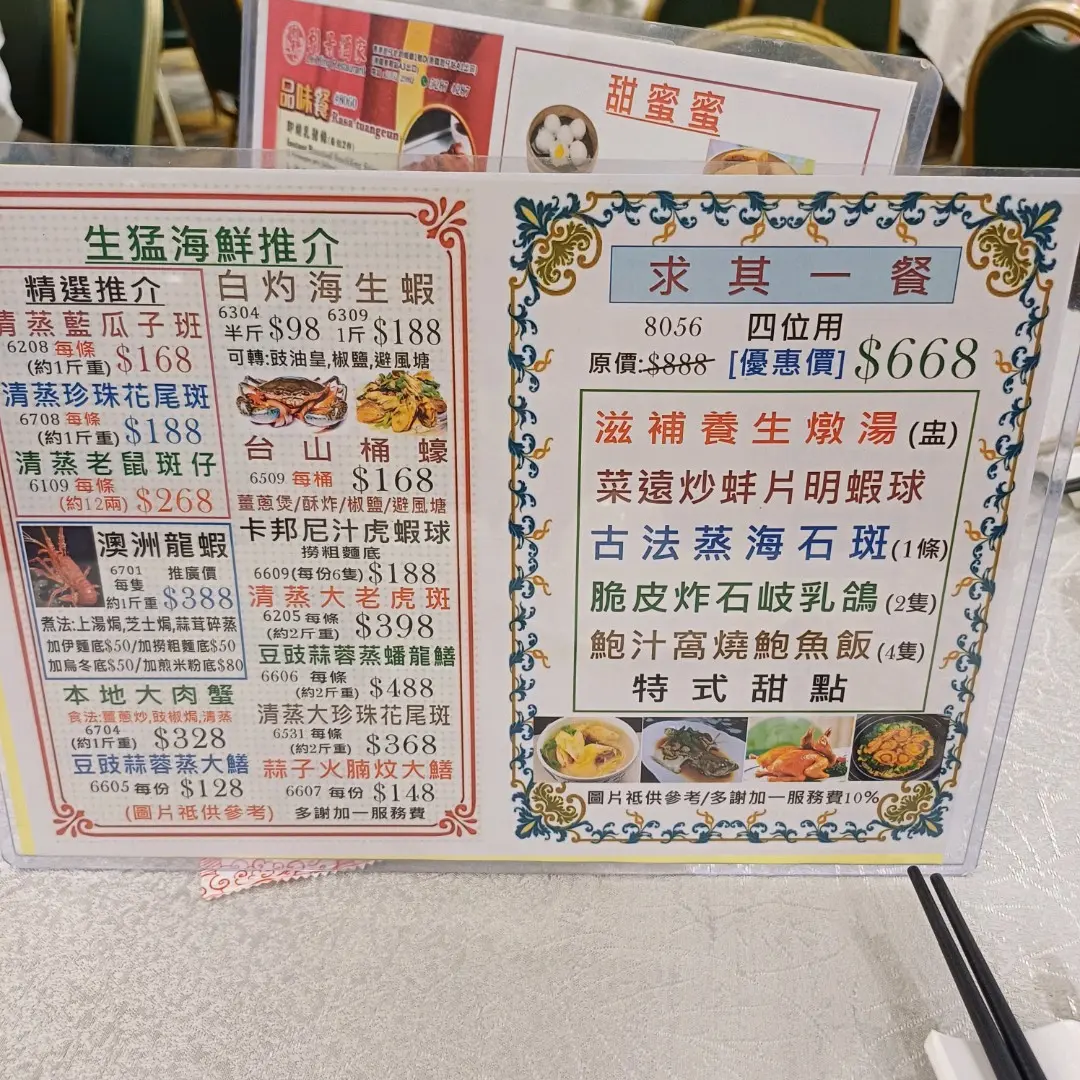 品味餐
#8060
Rasa tuangeun
甜蜜蜜
生猛海鮮推介
精選推介
清蒸藍瓜子班
6208 每條
(約1斤重) $168
清蒸珍珠花尾斑
6708 每條
(約1斤重) $188
清蒸老鼠斑仔
6109 每條
(約12兩) $268
澳洲龍蝦
6701 推廣價
每隻
約1斤重 $388
煮法:上湯焗,芝士焗,蒜茸碎蒸
加伊麵底$50/加撈粗麵底$50
加烏冬底$50/加煎米粉底$80
本地大肉蟹
食法:薑蔥炒,豉椒焗,清蒸
6704
(約1斤重) $328
豆豉蒜蓉蒸大鱔
6605 每份 $128
(圖片祗供參考)
白灼海生蝦
6304 6309
半斤 $98 1斤 $188
可轉:豉油皇,椒鹽,避風塘
台山桶蠔
6509 每桶 $168
薑蔥煲/酥炸/椒鹽/避風塘
卡邦尼汁虎蝦球
撈粗麵底
6609(每份6隻) $188
清蒸大老虎斑
6205 每條
(約2斤重) $398
豆豉蒜蓉蒸蟠龍鱔
6606 每條
(約2斤重) $488
清蒸大珍珠花尾斑
6531 每條
(約2斤重) $368
蒜子火腩炆大鱔
6607 每份 $148
多謝加一服務費
求其一餐
8056 四位用
原價:$888 [優惠價] $668
滋補養生燉湯(盅)
菜遠炒蚌片明蝦球
古法蒸海石斑(1條)
脆皮炸石岐乳鴿(2隻)
鮑汁窩燒鮑魚飯(4隻)
特式甜點
圖片祗供參考/多謝加一服務費10%